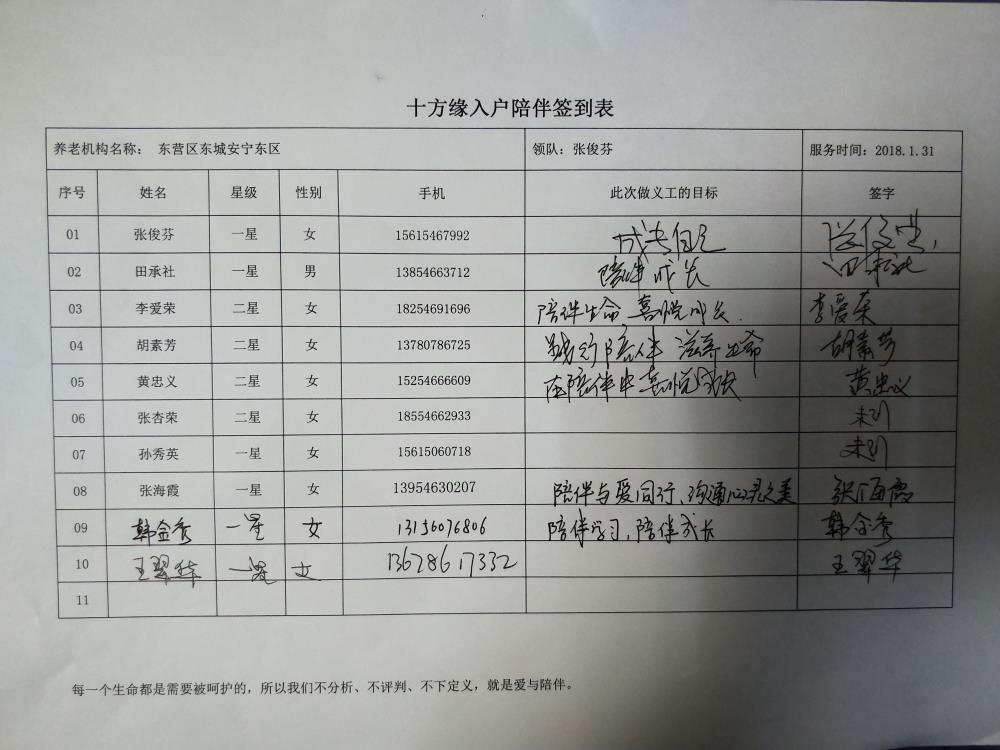 十方缘入户陪伴签到表
养老机构名称： 东营区东城安宁东区 领队：张俊芬 服务时间：2018.1.31
序号 姓名 星级 性别 手机 此次做义工的目标 签字
01 张俊芬 一星 女 15615467992 成长自己
02 田承社 一星 男 13854663712 陪伴成长 田承社
03 李爱荣 二星 女 18254691696 陪伴生命 喜悦成长. 李爱荣
04 胡素芳 二星 女 13780786725 践行陪伴 滋养生命 胡素芳
05 黄忠义 二星 女 15254666609 在陪伴中喜悦成长 黄忠义
06 张杏荣 二星 女 18554662933 未到
07 孙秀英 一星 女 15615060718 未到
08 张海霞 一星 女 13954630207 陪伴与爱同行、沟通心灵之美 张海霞
09 韩金秀 一星 女 13156076806 陪伴学习,陪伴成长 韩金秀
10 王翠华 一星 女 13678617332 王翠华
11
每一个生命都是需要被呵护的，所以我们不分析、不评判、不下定义，就是爱与陪伴。